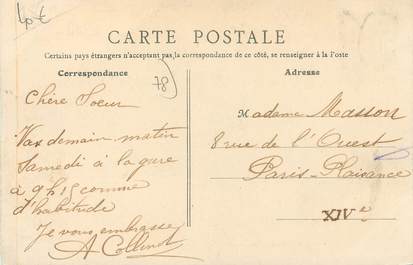 40€
CARTE POSTALE
Certains pays étrangers n'acceptant pas, la correspondance de ce côté, se renseigner à la Poste
Correspondance
78
Adresse
Chère Soeur
Vas demain matin
Samedi à la gare
à 9h15 comme
d'habitude
Je vous embrasse
A Collinot
Madame Masson
8 rue de l'Ouest
Paris-Plaisance
XIVe